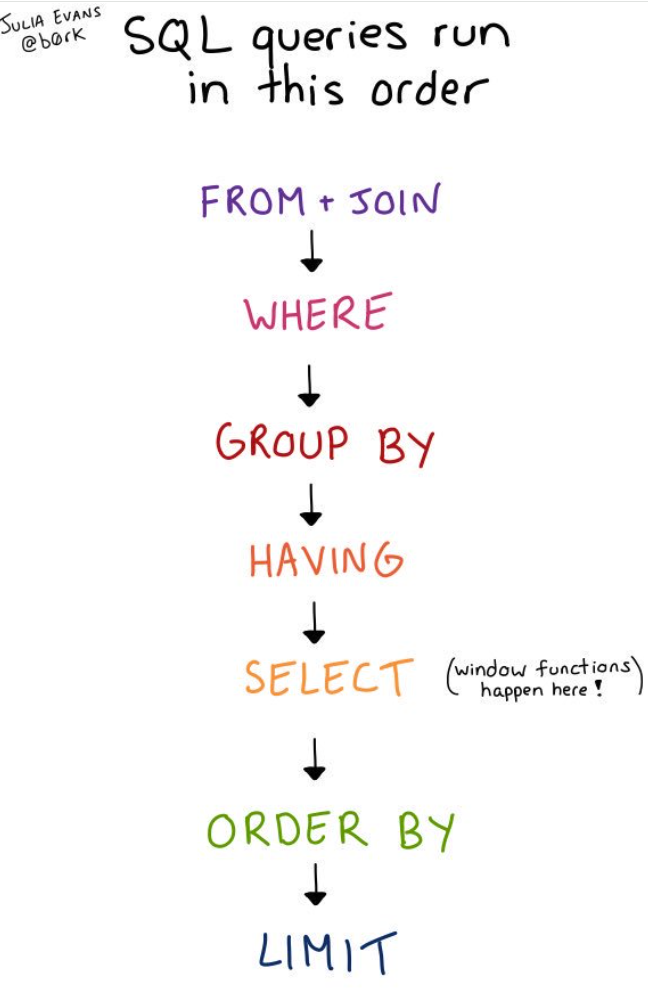 JULIA EVANS
@b0rk
SQL queries run
in this order
FROM + JOIN
WHERE
GROUP BY
HAVING
SELECT
(window functions
happen here!)
ORDER BY
LIMIT